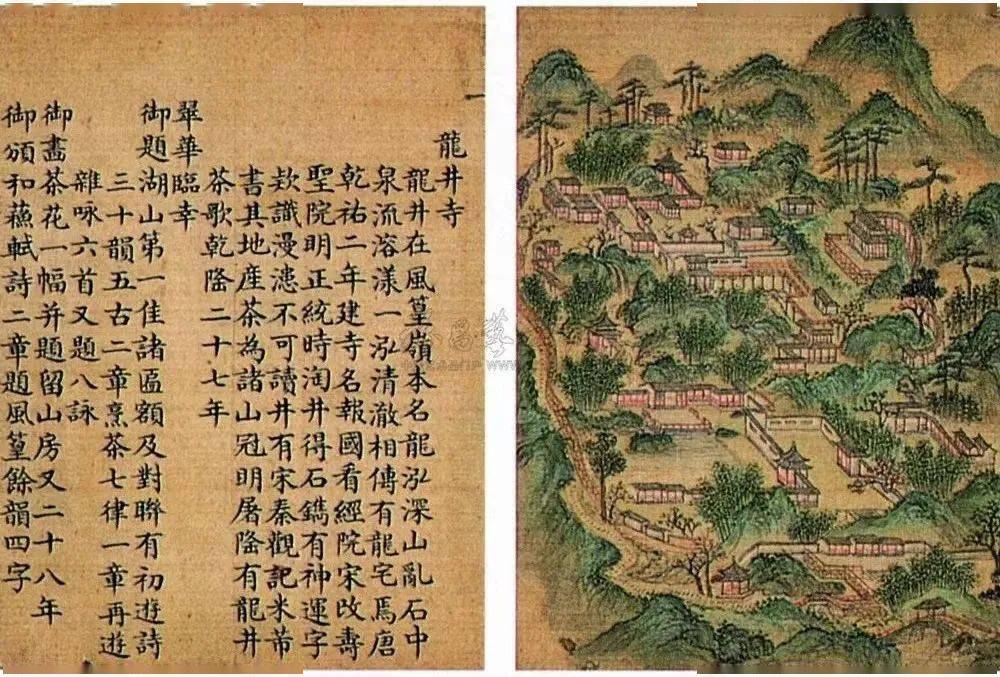 龍井寺
龍井在風篁嶺本名龍泓深山亂石中
泉流溶漾一泓清澈相傳有龍宅焉唐
乾祐二年建寺名報國看經院宋改壽
聖院明正統時淘井得石鐫有神運字
欵識漫漶不可讀井有宋秦觀記米芾
書其地産茶為諸山冠明屠隆有龍井
茶歌乾隆二十七年
翠華臨幸
御題湖山第一佳諸匾額及對聯有初遊詩
三十韻五古二章烹茶七律一章再遊
雜咏六首又題八詠
御畵茶花一幅并題留山房又二十八年
御頒和蘓軾詩二章題風篁餘韻四字